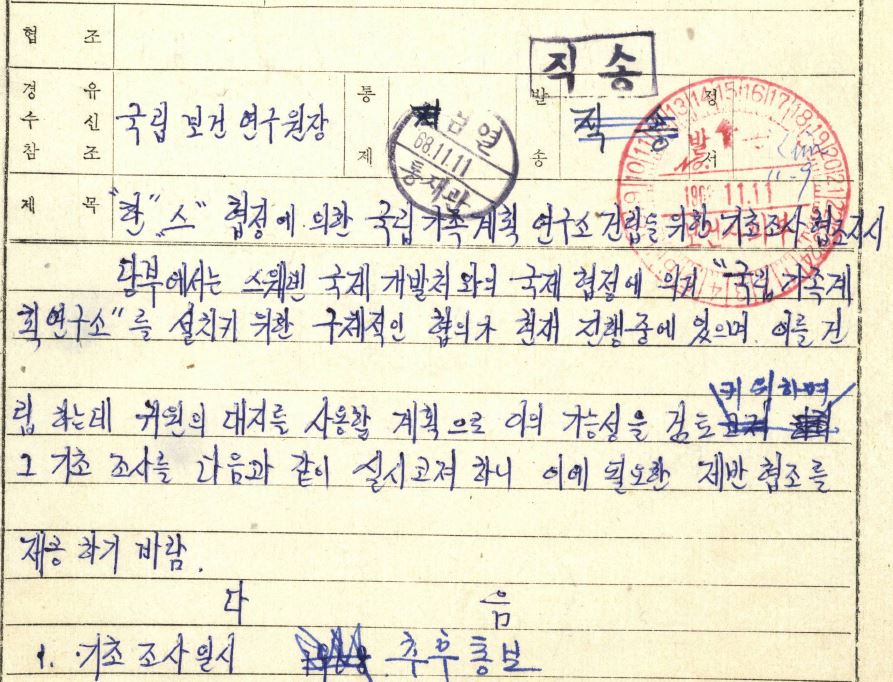 협 조
직송
경유 수신 참조 국립 보건 연구원장 통제 발송 직송 정서
검열 68.11.11 통제관
발 1968.11.11
제 목 "한" "스" 협정에 의한 국립가족계획 연구소 건립을 위한 기초조사 협조지시
당부에서는 스웨덴 국제 개발처와의 국제 협정에 의거 "국립가족계
획연구소"를 설치키 위한 구체적인 협의가 현재 진행중에 있으며 이를 건
립 하는데 귀원의 대지를 사용할 계획으로 이의 가능성을 검토키 위하여
그 기초 조사를 다음과 같이 실시고저 하니 이에 필요한 제반 협조를
제공 하기 바람.
다 음
1. 기초 조사 일시 추후 통보